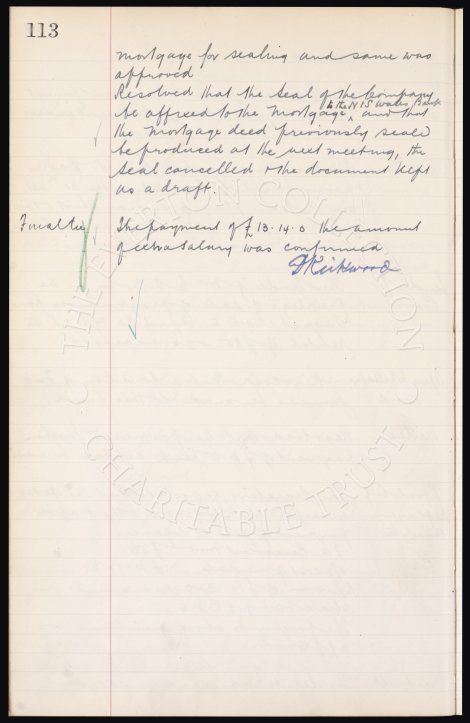 113
mortgage for sealing and same was
approved
Resolved that the Seal of the Company
to the N & S Wales Bank
be affixed to the Mortgage, and that
the Mortgage deed previously seald
be produced at the next meeting, the
Seal cancelled & the document kept
as a draft.
The payment of £13.14.0 the amount
of extra salary was confirmed
Kirkwood
THE EVERTON COLLECTION
CHARITABLE TRUST